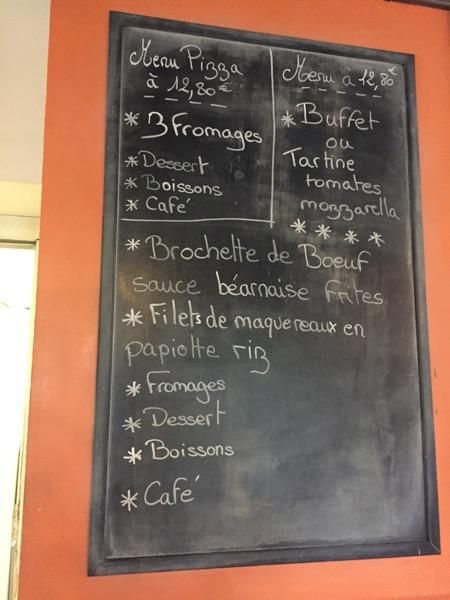 Menu Pizza
à 12,80€
* 3 Fromages
* Dessert
* Boissons
* Café
Menu à 12,80€
* Buffet
ou
Tartine
tomates
mozzarella
* * * *
* Brochette de Boeuf
sauce béarnaise frites
* Filets de maquereaux en
papiotte riz
* Fromages
* Dessert
* Boissons
* Café